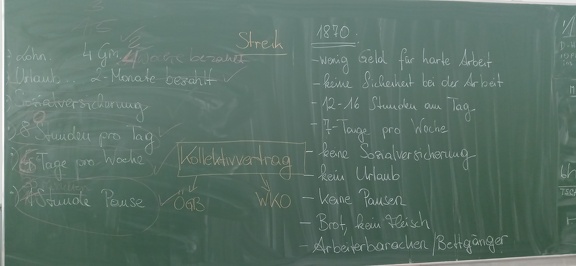 Streik
Lohn
4
bezahlt
Urlaub 2-Monate bezahlt
Sozialversicherung
8 Stunden pro Tag
Tage pro Woche
Stunde Pause
Kollektivvertrag
ÖGB
WKO
1870
- wenig Geld für harte Arbeit
- keine Sicherheit bei der Arbeit
- 12-16 Stunden am Tag
- 7-Tage pro Woche
- keine Sozialversicherung
- kein Urlaub
- Keine Pausen
- Brot, kein Fleisch
- Arbeiterbaracken/Bettgänger